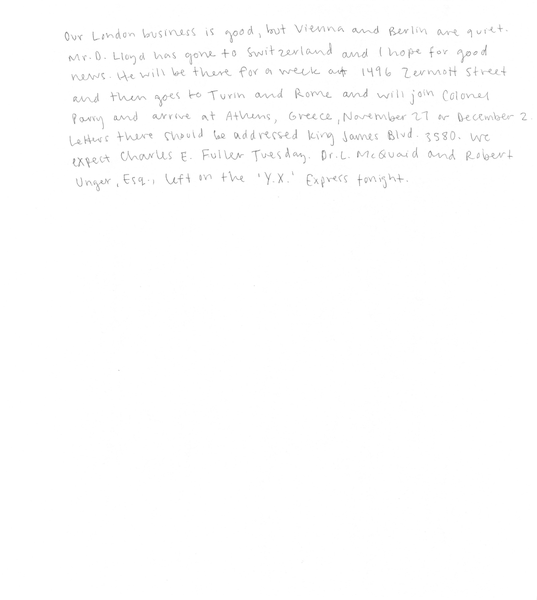 Our London business is good, but Vienna and Berlin are quiet.
Mr. D. Lloyd has gone to Switzerland and I hope for good
news. He will be there for a week at 1496 Zermott Street
and then goes to Turin and Rome and will join Colonel
Parry and arrive at Athens, Greece, November 27 or December 2.
Letters there should be addressed King James Blvd. 3580. We
expect Charles E. Fuller Tuesday. Dr. L. McQuaid and Robert
Unger, Esq., left on the 'Y.X.' Express tonight.